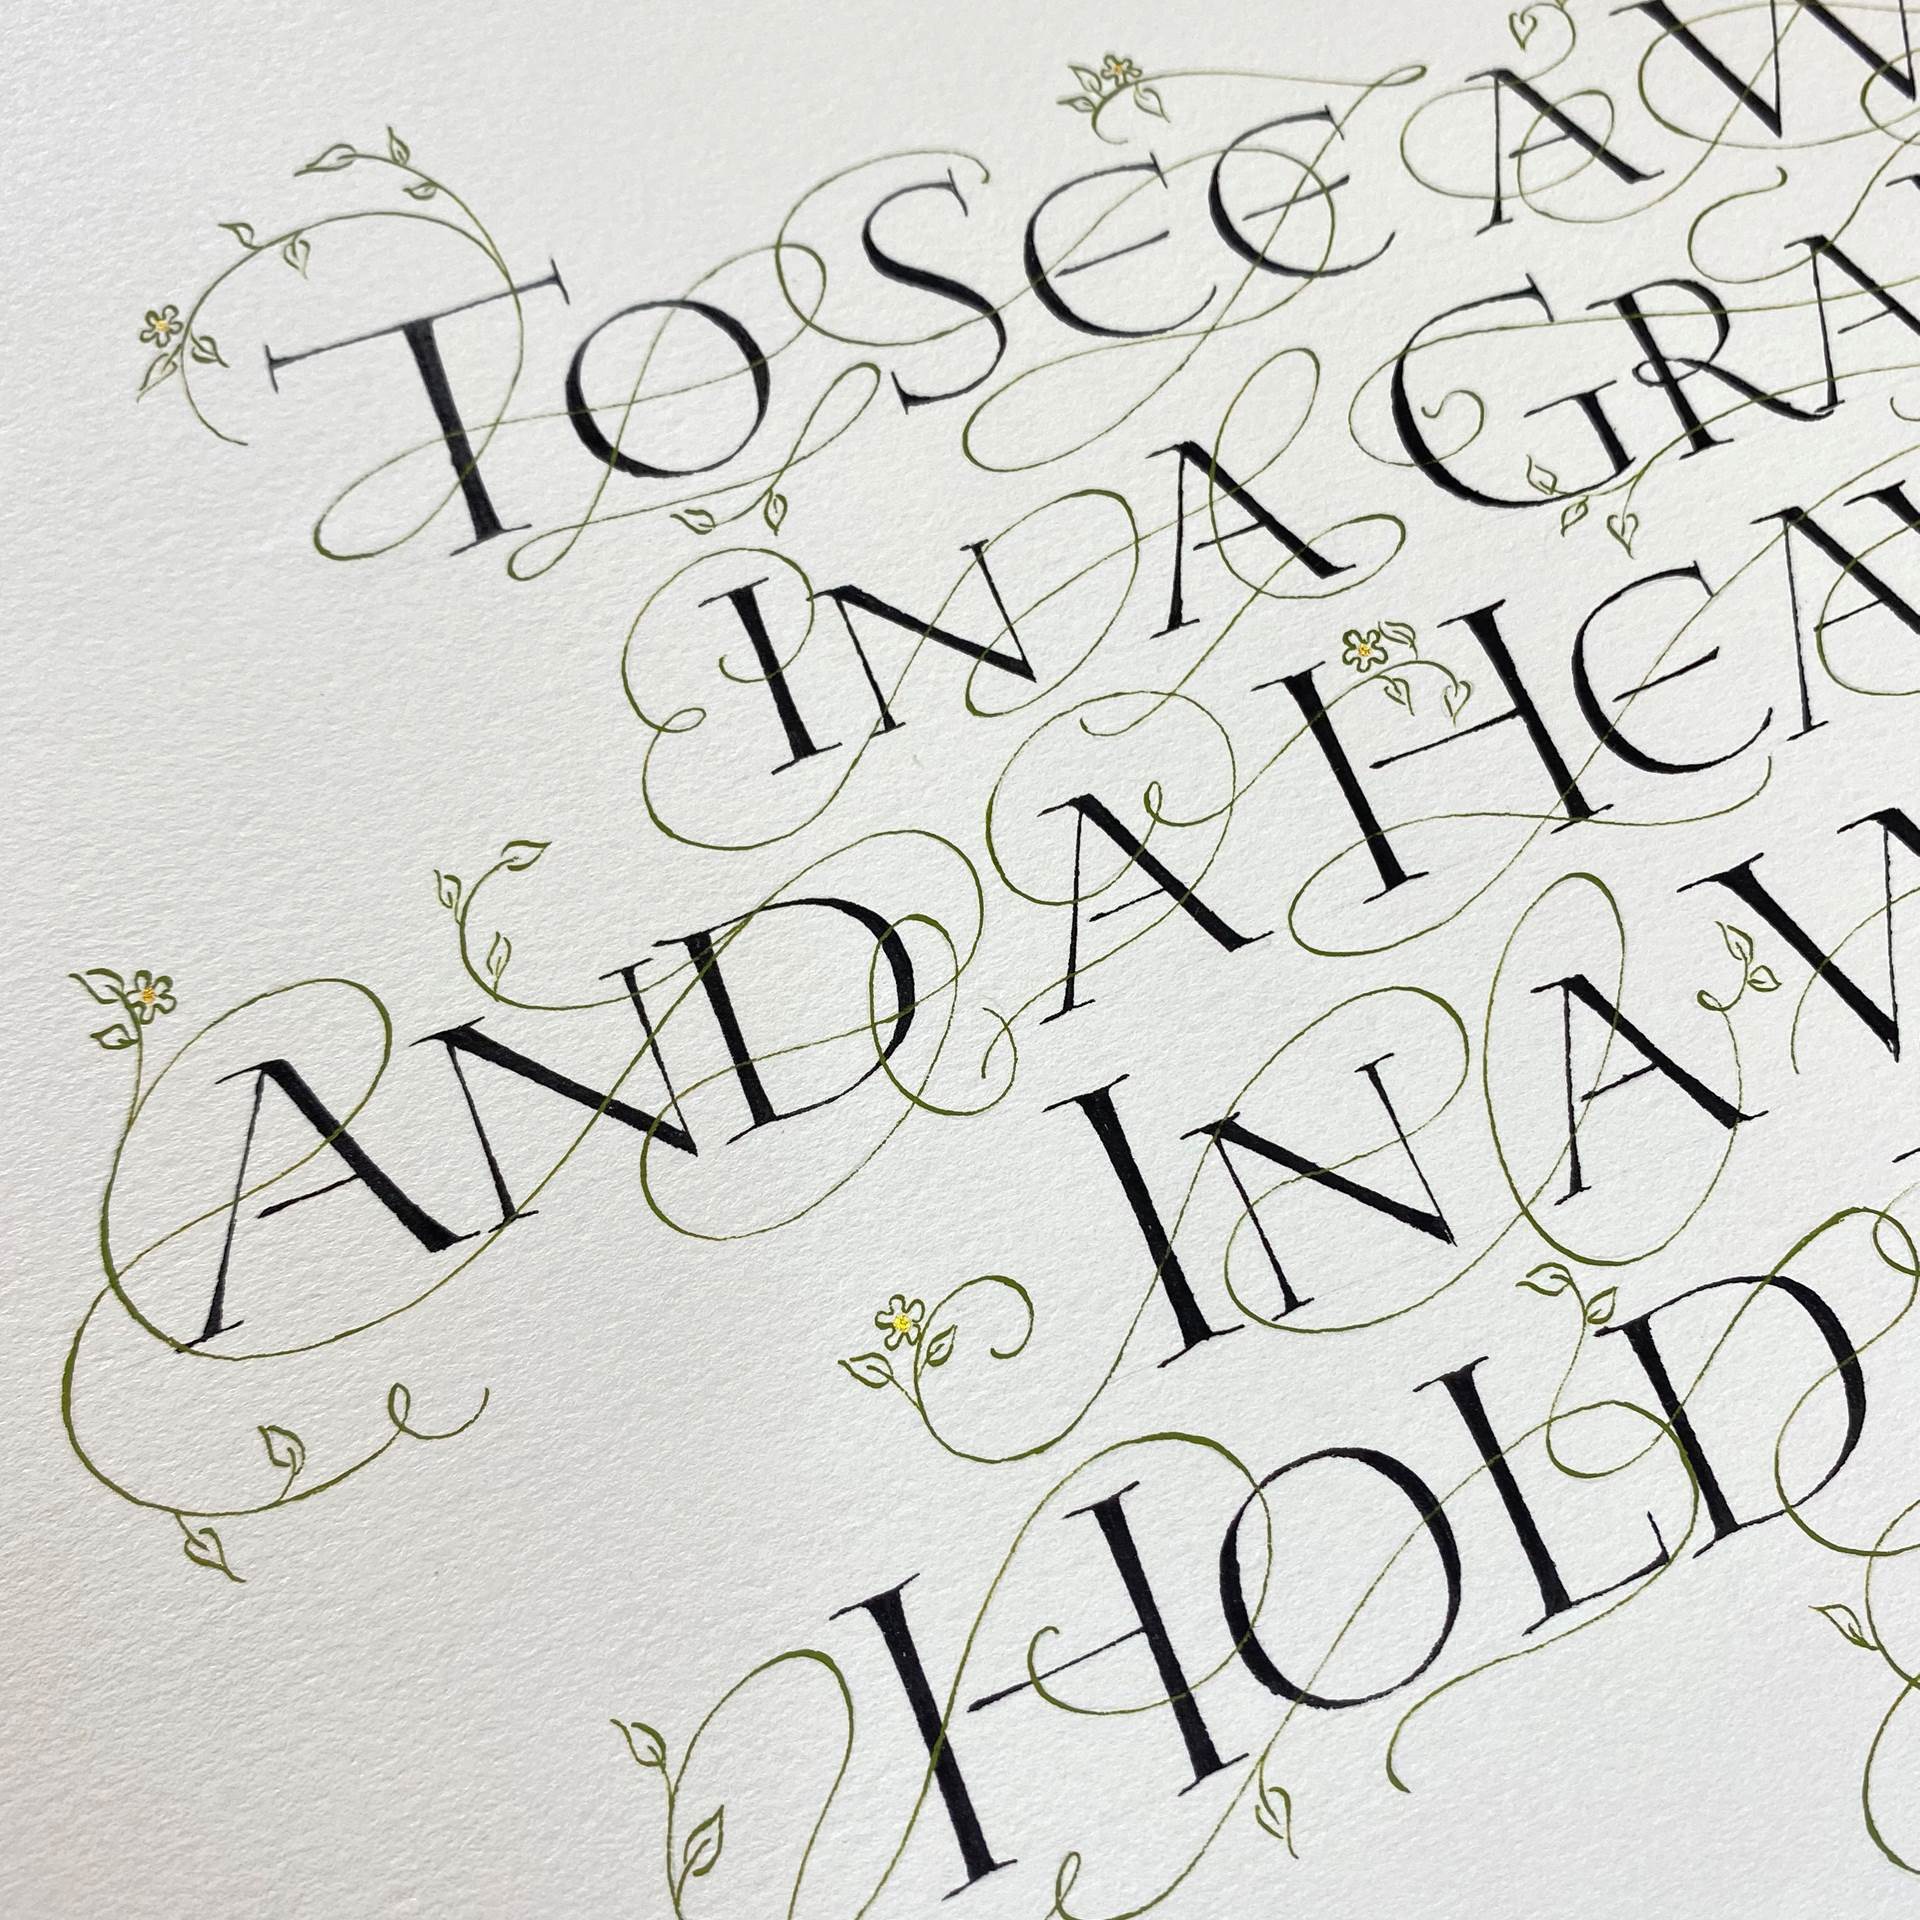 TO SEE A W
IN A GRA
AND A HEA
IN A W
HOLD